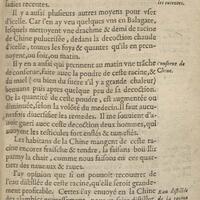 ladies recentes.
les recentes.
Il y a aussi plusieurs autres moyens pour vser
d'icelle. Car i'en ay veu quelques vns en Balagate,
lesquels mettoyent vne drachme & demi de racine
de Chine puluerisée, dedans la decoction chaude
d'icelle, toutes les foys & quantes qu'ils en prenoyent
, ou soir, ou matin.
Il y en a aussi qui prennent au matin vne tasche
de conserue, faite auec la poudre de ceste racine, &
du miel (ou bien du sucre s'il y a grande chaleur)
conserue de
Chine.
beuuant puis apres vn coup de la decoction.
Or la quantité de ceste poudre, est augmentée ou
diminuée, selon le vouloir du medecin. Il faut
auoir diuersifier les remedes. Il me souuient d'a-
uoir gueri auec ceste decoction deux hommes, qui
auoyent les testicules fort enflés & tumefiés.
Les habitans de la Chine mangent de ceste racine
encores fraische & tendre, la faisans bouillir
parmy la chair, comme nous faisons en ces quartiers
des naueaux & raues.
I'ay opinion que si on pouuoit recouurer de
l'eau distillée de ceste racine, qu'elle seroit grandement
profitable. Certes i'ay enuoyé en la Chine
Eau distillée
de la racine